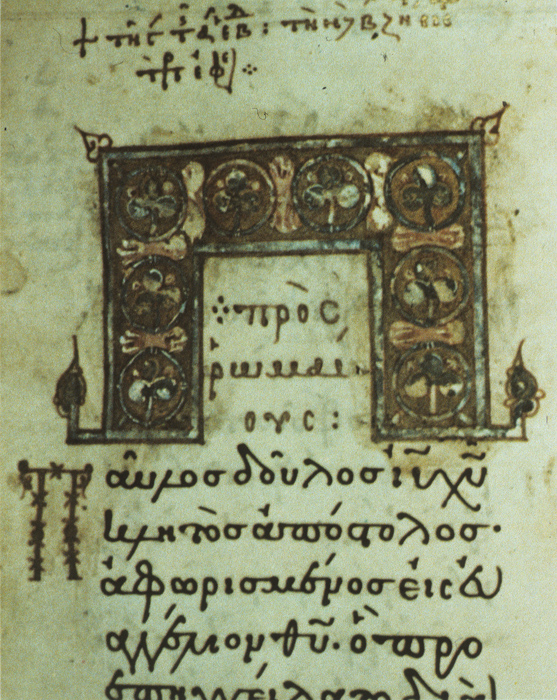 πρὸς
ῥωμαί
ους:
Παῦλος δοῦλος ἰῦ χῦ
κλητὸς ἀπόστολος·
ἀφωρισμένος εἰς εὐ
αγγέλιον θῦ· ὃ προ
επηγγείλατο διὰ